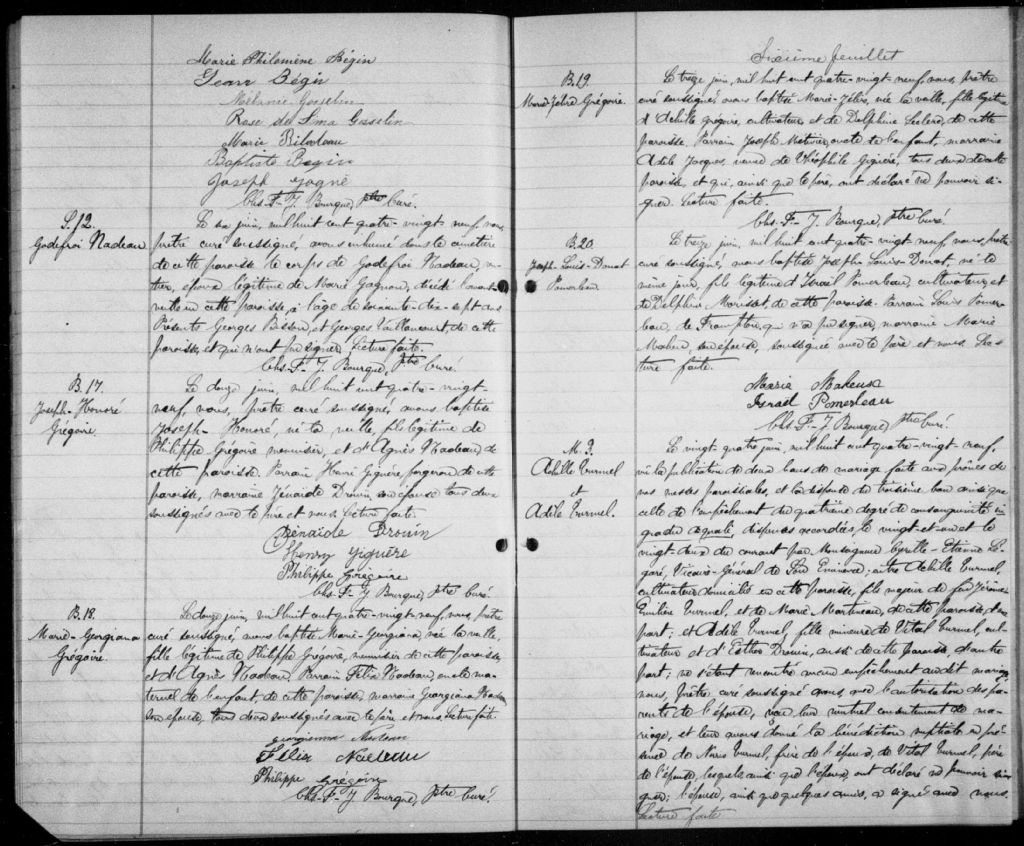 Marie Philomène Bégin
Jean Bégin
Mélanie Gosselin
Rose de Lima Gosselin
Marie Bilodeau
Baptiste Begin
Joseph Gagné
Chs-F-J Bourque, ptre curé.
S. 12.
Godefroi Nadeau
Le six juin, mil huit cent quatre-vingt neuf, nous,
prêtre curé soussigné, avons inhumé dans le cimetière
de cette paroisse le corps de Godefroi Nadeau, ren-
tier, époux légitime de Marie Gagnon, décédé l'avant-
veille en cette paroisse, à l'âge de soixante-dix-sept ans
Présents Georges Bisson, et Georges Vaillancourt, de cette
paroisse, et qui n'ont pu signer. Lecture faite.
Chs-F-J Bourque, ptre curé.
B. 17.
Joseph-Honoré
Grégoire.
Le douze juin, mil huit cent quatre-vingt-
neuf, nous, prêtre curé soussigné, avons baptisé
Joseph-Honoré, né la veille, fils légitime de
Philippe Grégoire menuisier, et d'Agnès Nadeau, de
cette paroisse. Parrain Henri Giguère forgeron de cette
paroisse, marraine Zénaïde Drouin, son épouse tous deux
soussignés avec le père et nous. Lecture faite.
Zénaïde Drouin
Henry Giguère
Philippe Grégoire
Chs-F-J Bourque, ptre curé
B. 18.
Marie-Georgiana
Grégoire.
Le douze juin, mil huit cent quatre-vingt-neuf, nous, prêtre
curé soussigné, avons baptisé Marie-Georgiana, née la veille,
fille légitime de Philippe Grégoire, menuisier de cette paroisse,
et d'Agnès Nadeau. Parrain Félix Nadeau, oncle ma-
ternel de l'enfant de cette paroisse, marraine Georgiana Nadeau
son épouse, tous deux soussignés avec le père et nous. Lecture faite.
georgianna Nadeau
Félix Nadeau
Philippe Grégoire
Chs-F-J Bourque, ptre curé.
Sixième feuillet
B. 19.
Marie-Zélire Grégoire.
Le treize juin, mil huit cent quatre-vingt neuf, nous, prêtre
curé soussigné avons baptisé Marie-Zélire, née la veille, fille légitime
d'Achille Grégoire, cultivateur, et de Delphine Leclerc, de cette
paroisse. Parrain Joseph Métivier, oncle de l'enfant, marraine
Adèle Jacques, veuve de Théophile Giguère, tous deux de cette
paroisse, et qui, ainsi que le père, ont déclaré ne pouvoir si-
gner. Lecture faite.
Chs-F-J. Bourque, ptre curé.
B. 20.
Joseph-Louis-Donat
Pomerleau
Le treize juin, mil huit cent quatre-vingt-neuf, nous, prêtre
curé soussigné, avons baptisé Joseph Louis-Donat, né le
même jour, fils légitime d'Israël Pomerleau, cultivateur, et
de Delphine Morisset, de cette paroisse. Parrain Louis Pomer-
leau, de Frampton, qui n'a pu signer, marraine Marie
Maheux, son épouse, soussignée avec le père et nous. Lec-
ture faite.
Marie Maheux
Israël Pomerleau
Chs F-J Bourque, ptre curé.
M. 3.
Achille Turmel
et
Adèle Turmel.
Le vingt-quatre juin, mil huit cent quatre-vingt-neuf,
vu la publication de deux bans de mariage faite aux prônes de
nos messes paroissiales, et la dispense du troisième ban ainsi que
celle de l'empêchement du quatrième degré de consanguinité in
gradu æquali, dispenses accordées le vingt-et-un et le
vingt-deux du courant par Monseigneur Cyrille-Etienne Lé-
garé, Vicaire-Général de Son Eminence; entre Achille Turmel,
cultivateur domicilié en cette paroisse, fils majeur de feu Jérôme
Emilien Turmel, et de Marie Martineau, de cette paroisse d'une
part; et Adèle Turmel fille mineure de Vital Turmel, cul-
tivateur et d'Esther Drouin, aussi de cette paroisse, d'autre
part; ne s'étant rencontré aucun empêchement audit mariage
nous, prêtre curé soussigné avons, avec l'autorisation des pa-
rents de l'épouse, reçu leur mutuel consentement de ma-
riage, et leur avons donné la bénédiction nuptiale en pré-
sence de Turmel, frère de l'époux, de Vital Turmel, père
de l'épouse, lesquels ainsi que l'époux, ont déclaré ne pouvoir si-
gner; l'épouse, ainsi que quelques amis, a signé avec nous.
Lecture faite